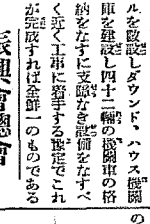 の
ルを敷設しダウンド、ハウス機關
庫を建設し四十二輛の機關車の格
納をなすに支障なき設備をなすべ
く近く工事に着手する豫定でこれ
が完成すれば全鮮一のものである
興會總會